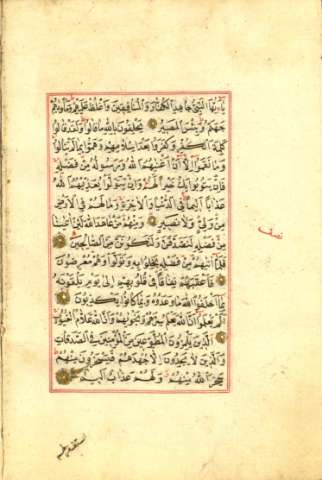 يا أيها النبي جاهد الكفار والمنافقين واغلظ عليهم ومأويهم
جهنم وبئس المصير يحلفون بالله ما قالوا ولقد قالوا
كلمة الكفر وكفروا بعد اسلامهم وهموا بما لم ينالوا
وما نقموا الا ان اغنيهم الله ورسوله من فضله
فان يتوبوا يك خيرا لهم وان يتولوا يعذبهم الله
عذابا اليما في الدنيا والاخرة وما لهم في الارض
من ولي ولا نصير ومنهم من عاهد الله لئن اتينا
من فضله لنصدقن ولنكونن من الصالحين
فلما اتيهم من فضله بخلوا به وتولوا وهم معرضون
فاعقبهم نفاقا في قلوبهم الى يوم يلقونه
بما اخلفوا الله ما وعدوه وبما كانوا يكذبون
الم يعلموا ان الله يعلم سرهم ونجويهم وان الله علام الغيوب
الذين يلمزون المطوعين من المؤمنين في الصدقات
والذين لا يجدون الا جهدهم فيسخرون منهم
سخر الله منهم ولهم عذاب اليم
نصف